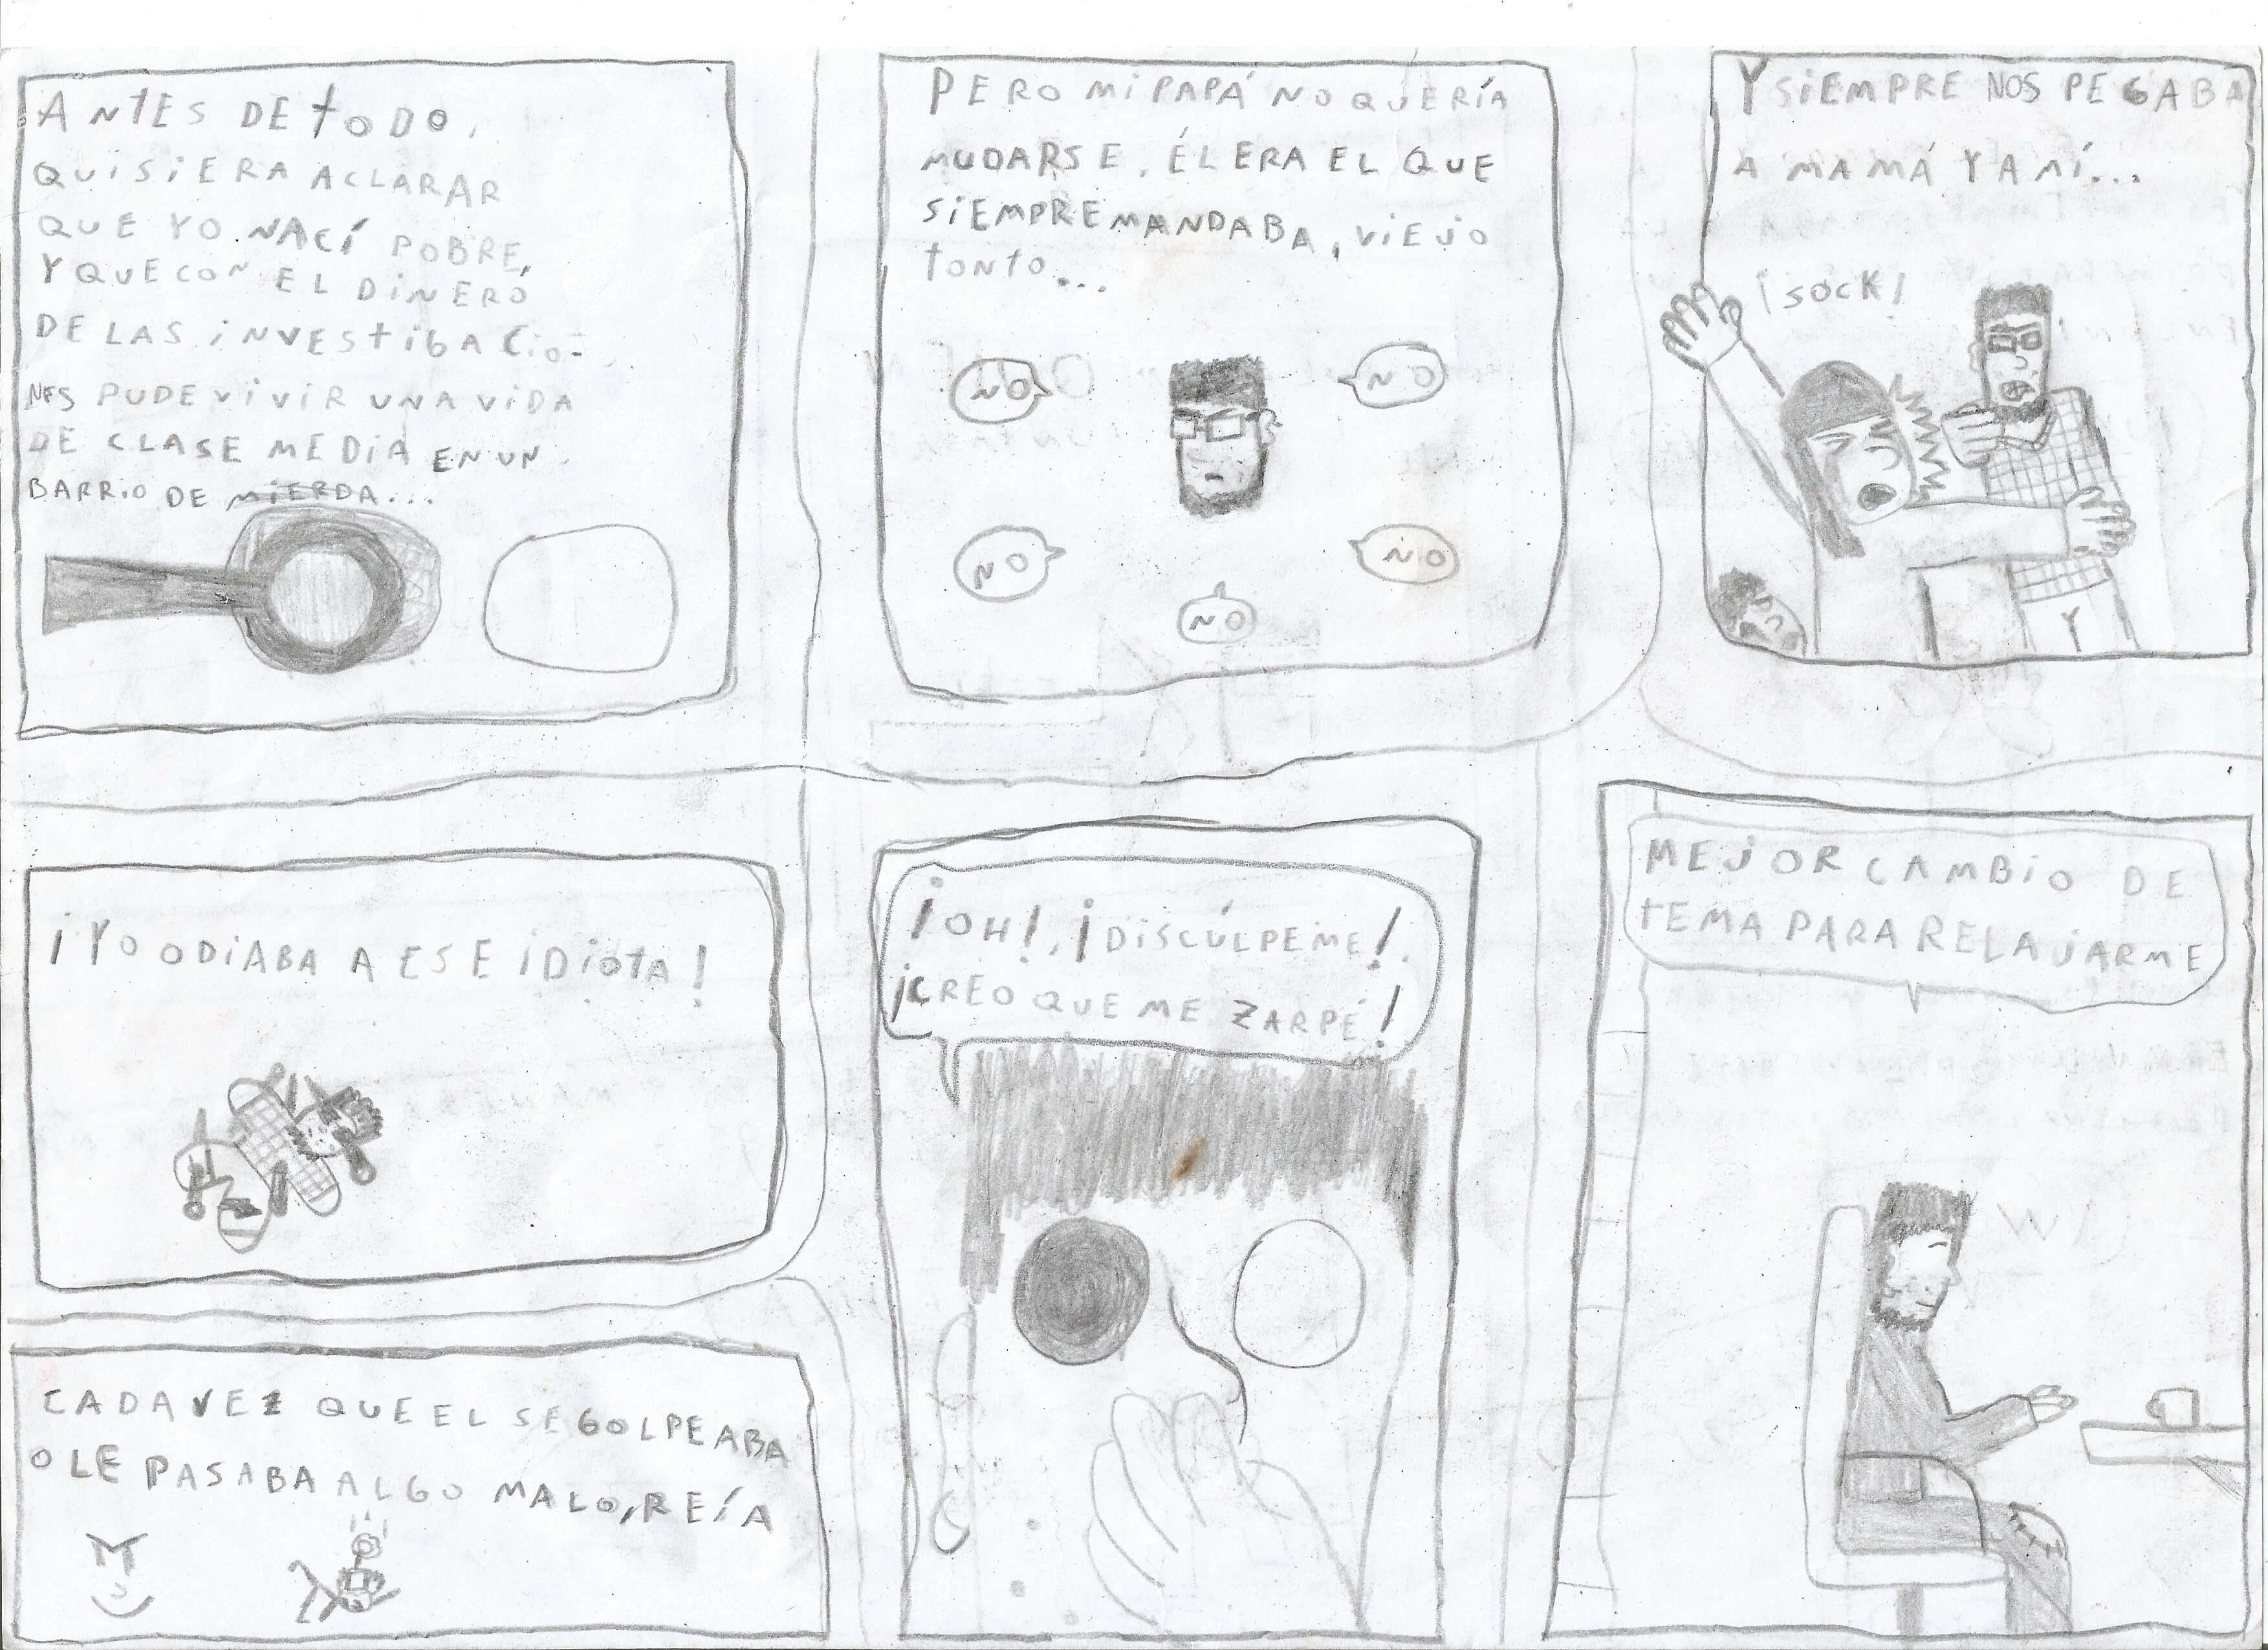 ANTES DE TODO,
QUISIERA ACLARAR
QUE YO NACÍ POBRE,
Y QUE CON EL DINERO
DE LAS INVESTIGACIO-
NES PUDE VIVIR UNA VIDA
DE CLASE MEDIA EN UN
BARRIO DE MIERDA...
PERO MI PAPÁ NO QUERÍA
MUDARSE, ÉL ERA EL QUE
SIEMPRE MANDABA, VIEJO
TONTO...
NO
NO
NO
NO
NO
Y SIEMPRE NOS PEGABA
A MAMÁ Y A MÍ...
¡SOCK!
¡YO ODIABA A ESE IDIOTA!
CADA VEZ QUE EL SE GOLPEABA
O LE PASABA ALGO MALO, REÍA
¡OH!, ¡DISCÚLPEME!
¡CREO QUE ME ZARPÉ!
MEJOR CAMBIO DE
TEMA PARA RELAJARME